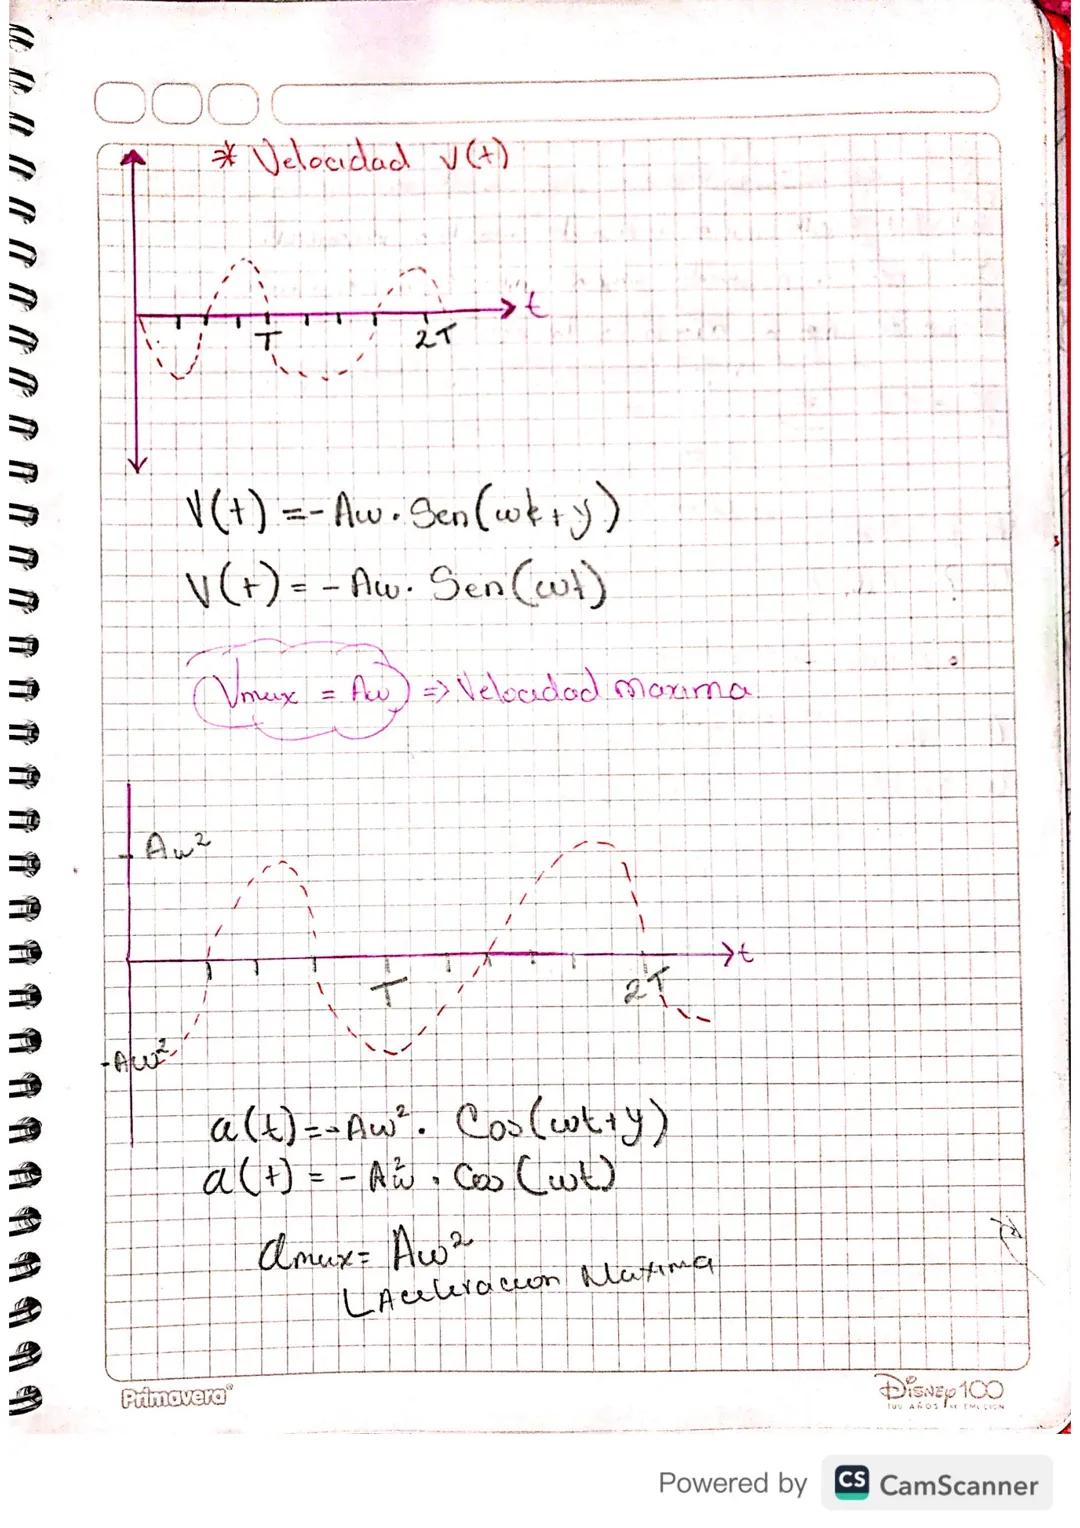 * Velocidad v(t)
t
T
2T
V(t) = - Aw . Sen(wt + y)
V(t) = - Aw. Sen(wt)
Vmax = Aw => Velocidad maxima.
Aw²
t
T
2T
-Aw²
a(t) = - Aw² . Cos(wt+y)
a(t) = - Aw² . Cos(wt)
amax = Aw²
Aceleracion Maxima
Primavera®
Disney 100
100 AÑOS DE EMOCIÓN
Powered by CS CamScanner